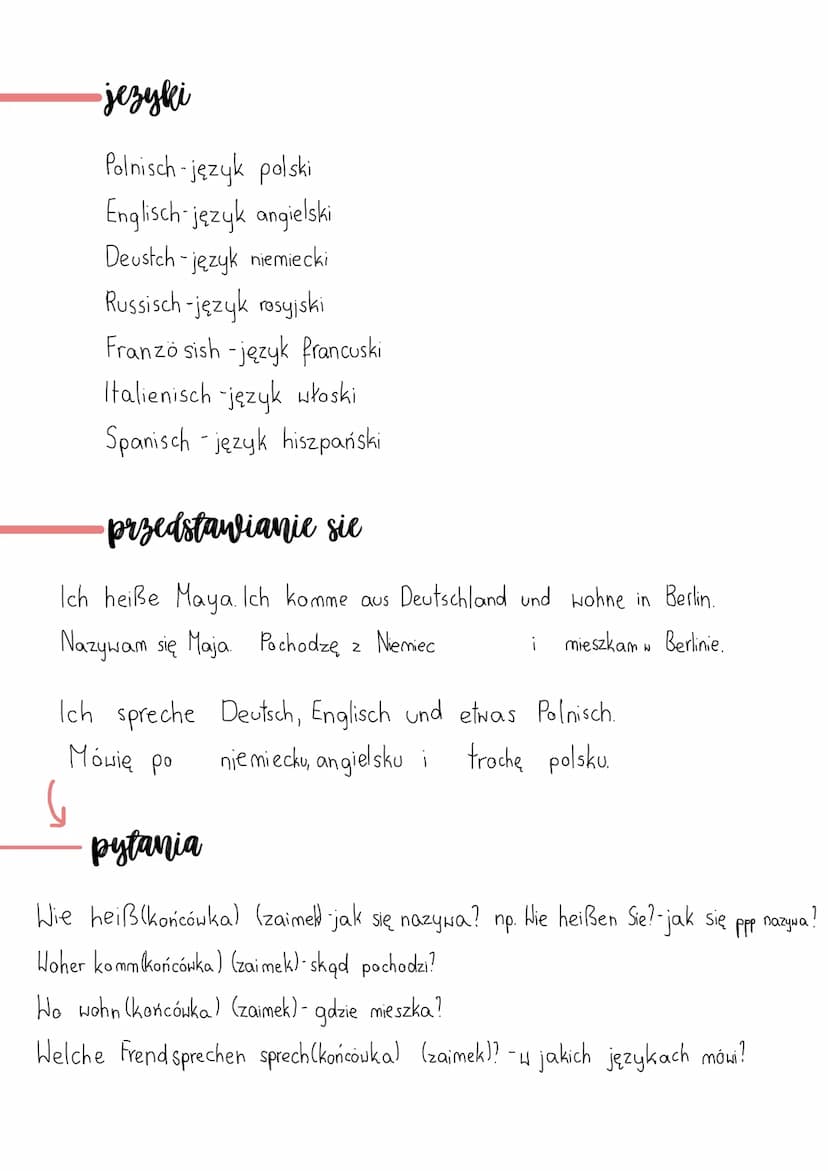 języki
Polnisch - język polski
Englisch - język angielski
Deustch - język niemiecki
Russisch - język rosyjski
Französish - język francuski
Italienisch - język włoski
Spanisch - język hiszpański
przedstawianie sie
Ich heiße Maya. Ich komme aus Deutschland und wohne in Berlin.
Nazywam się Maja. Pochodzę z Niemiec i mieszkam w Berlinie.
Ich spreche Deutsch, Englisch und etwas Polnisch.
Mówię po niemiecku, angielsku i trochę polsku.
pytania
Wie heiß(końcówka) (zaimek) - jak się nazywa? np. Wie heißen Sie? - jak się ppp nazywa?
Woher komm(końcówka) (zaimek) - skąd pochodzi?
Wo wohn(końcówka) (zaimek) - gdzie mieszka?
Welche Frendsprechen sprech(końcówka) (zaimek)? - w jakich językach mówi?